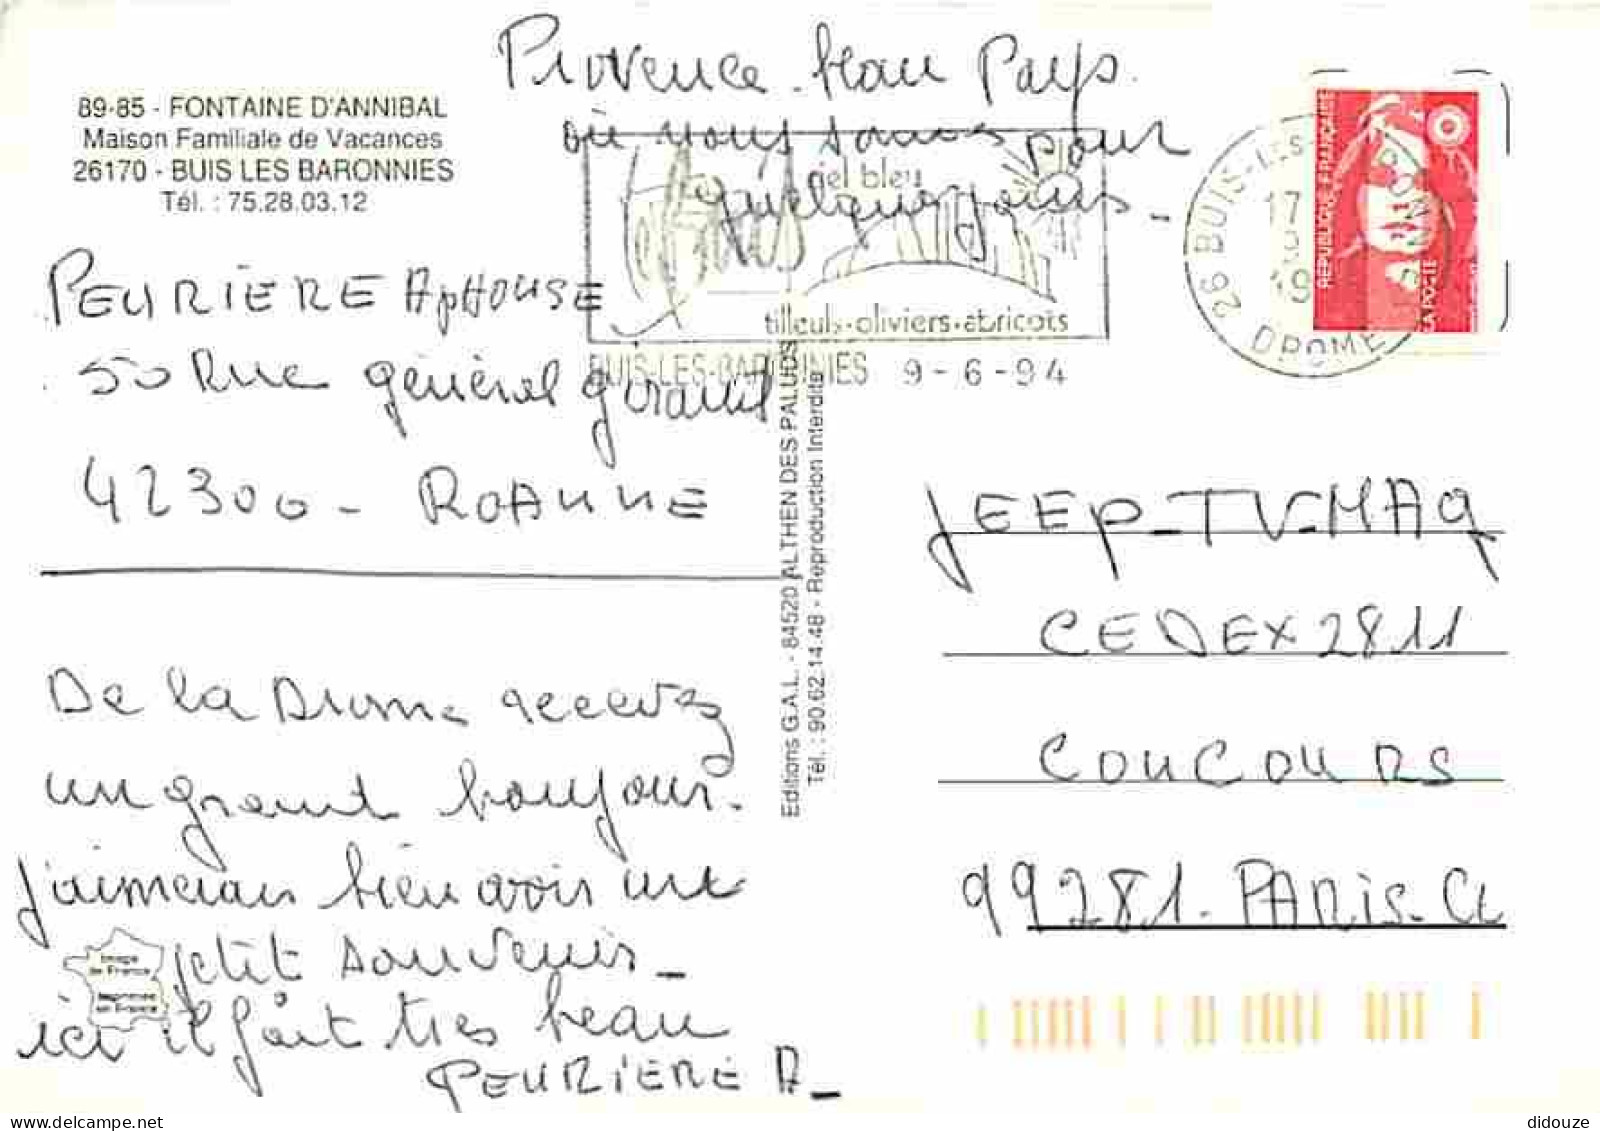 Provence beau Pays.
où nous sommes pour
quelques jours_
89-85 - FONTAINE D'ANNIBAL
Maison Familiale de Vacances
26170 - BUIS LES BARONNIES
Tél. : 75.28.03.12
ciel bleu
tilleuls-oliviers-abricots
BUIS-LES-BARONNIES 9-6-94
26 BUIS-LES-BARONNIES
17
19
DROME
REPUBLIQUE FRANÇAISE
LA POSTE
PEURIERE AlpHONSE
50 Rue général giraud
42300 - ROANNE
De la Drome recevez
un grand bonjour.
j'aimerais bien avoir une
petit souvenir_
ici il fait très beau
PEURIERE A_
Image
de France
Imprimée
en France
Editions G.A.L. - 84520 ALTHEN DES PALUDS
Tél. : 90.62.14.48 - Reproduction Interdite
JEEP-TV-MAG
CEDEX 2811
CONCOURS
99281-PARIS-CL
didouze
delcampe.net